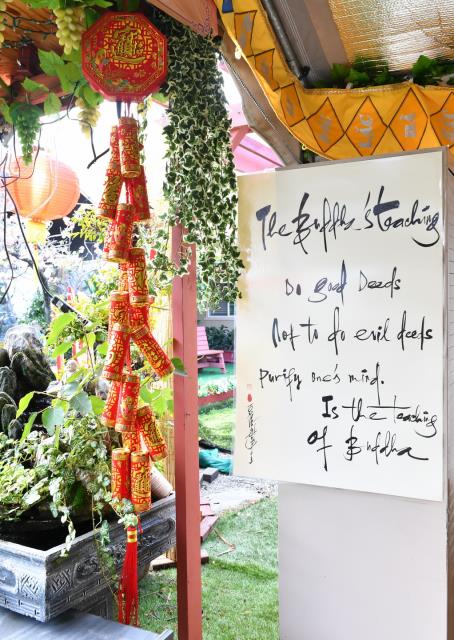 The Buddha's teaching
Do good Deeds
Not to do evil deeds
Purify one's mind.
Is the teaching
of Buddha